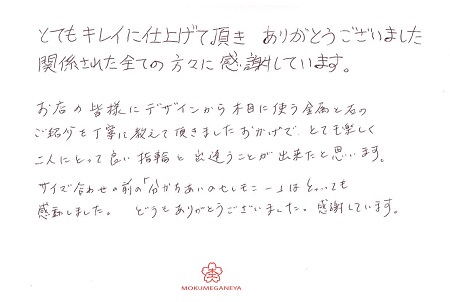 とてもキレイに仕上げて頂き ありがとうございました
関係された全ての方々に感謝しています。
お店の皆様にデザインから木目に使う金属と石の
ご紹介を丁寧に教えて頂きましたおかげで、とても楽しく
二人にとって良い指輪と出逢うことが出来たと思います。
サイズ合わせの前の「分かちあいのセレモニー」はとっても
感動しました。 どうもありがとうございました。感謝しています。
MOKUMEGANEYA